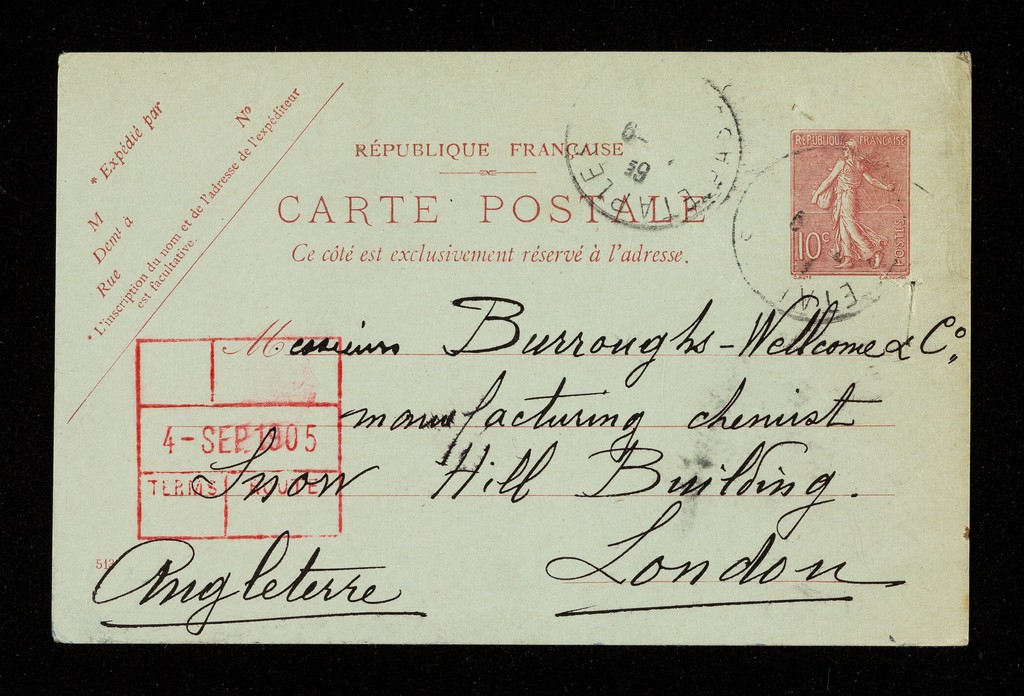 * Expédié par
M
Nº
Dent à
Rue
* L'inscription du nom et de l'adresse de l'expéditeur
est facultative.
RÉPUBLIQUE FRANÇAISE
CARTE POSTALE
Ce côté est exclusivement réservé à l'adresse.
ETAPLES
RÉPUBLIQUE FRANÇAISE
10c
POSTES
Messieurs Burroughs-Wellcome & Co.,
manufacturing chemist
4-SEP.1905
Snow Hill Building.
TERMS ROUTE
London
Angleterre